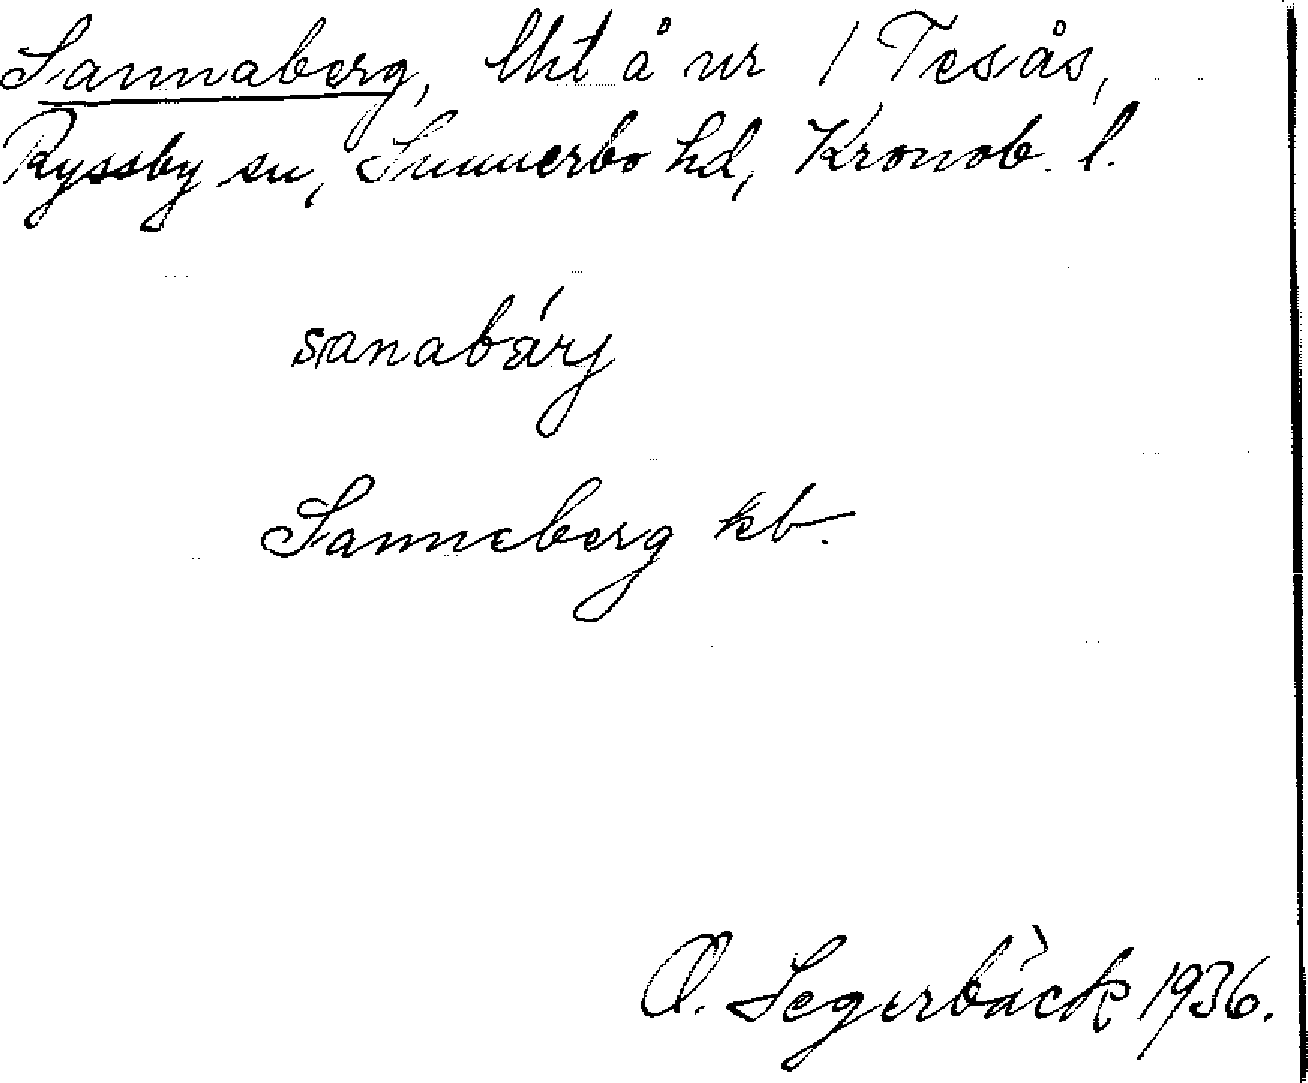 Sannaberg, lht å nr 1 Tesås,
Ryssby sn, Sunnerbo hd, Kronob. l.
sanabärj
Sanneberg kb.
O. Segerbäck 1936.